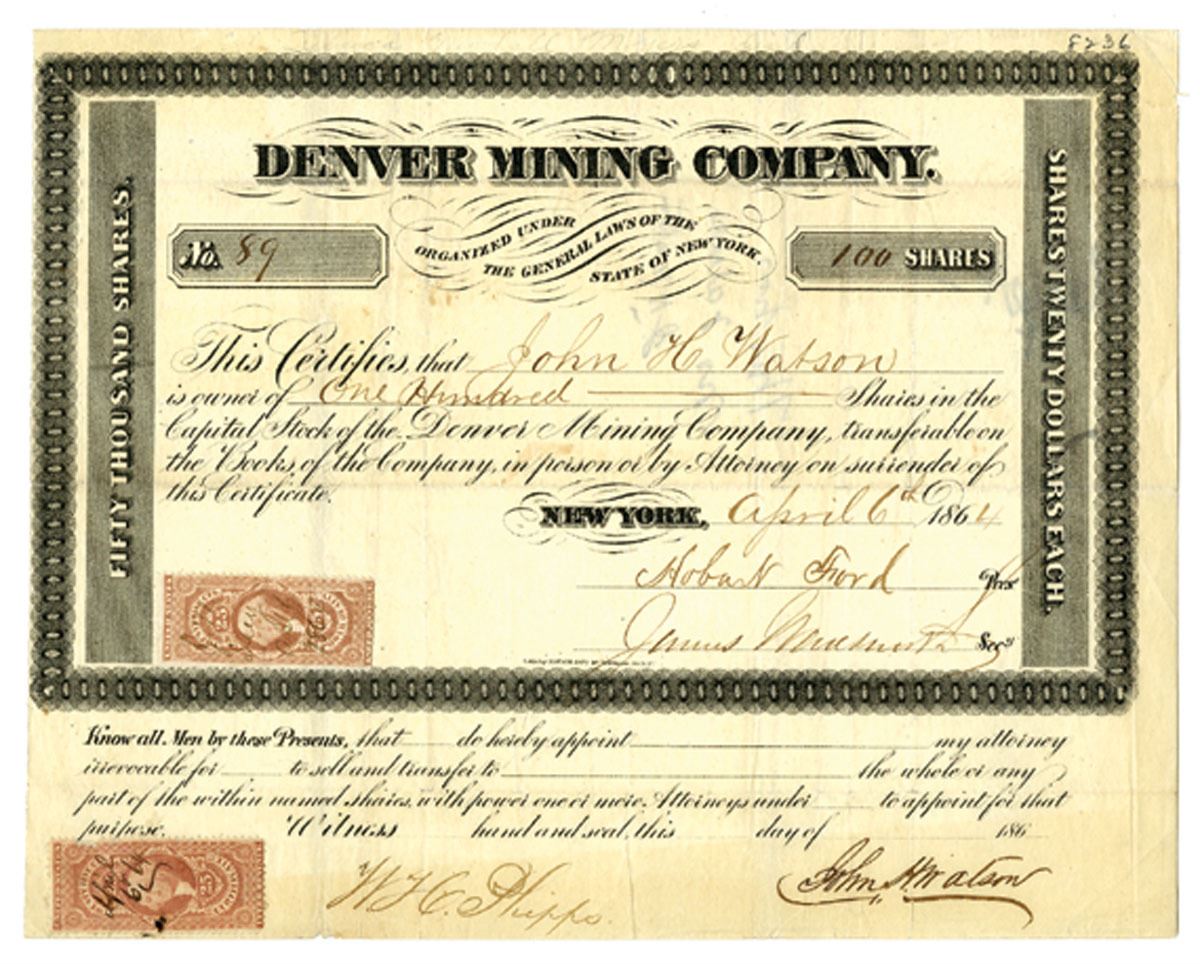 8236
DENVER MINING COMPANY.
ORGANIZED UNDER
THE GENERAL LAWS OF THE
STATE OF NEW YORK.
No. 89
100 SHARES
FIFTY THOUSAND SHARES.
SHARES TWENTY DOLLARS EACH.
This Certifies, that John H Watson
is owner of One Hundred Shares in the
Capital Stock of the Denver Mining Company, transferable on
the Books of the Company, in person or by Attorney on surrender of
this Certificate.
NEW YORK, April 6th 1864
Hobart Ford Pres
James Secy
25
Know all Men by these Presents, that do hereby appoint my attorney
irrevocable for to sell and transfer to the whole or any
part of the within named shares, with power one or more Attorneys under to appoint for that
purpose. Witness hand and seal, this day of 186
25
W H C Phipps.
John H Watson